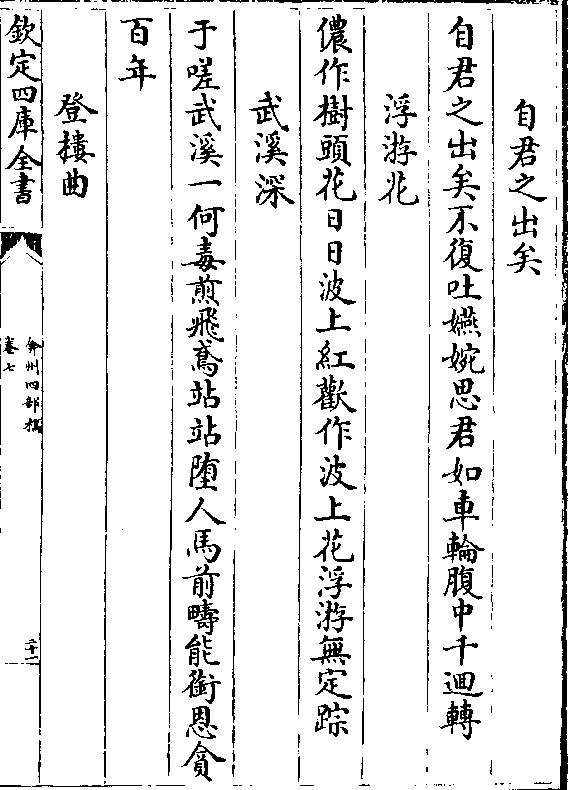 自君之出矣
自君之出矣不復吐嬿婉思君如車輪腹中千迴轉
浮游花
儂作樹頭花日日波上紅歡作波上花浮游無定踪
武溪深
于嗟武溪一何毒煎飛鳶站站墮人馬前疇能銜恩貪
百年
登樓曲
欽定四庫全書
弇州四部稿
卷七
二十一